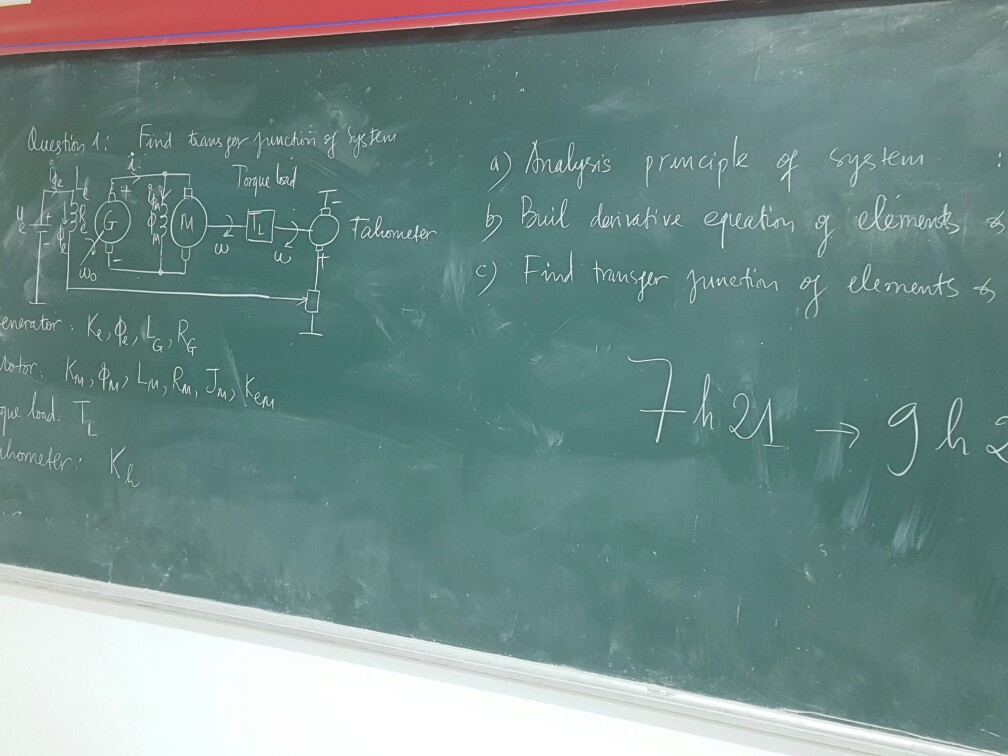 Question 1: Find transger function of system
i
Torque load
G
M
T_L
T-
Tahometer
ω
ω
ω₀
enerator: Ke, ϕe, L_G, R_G
otor: K_M, ϕ_M, L_M, R_M, J_M, K_eM
que load: T_L
ahometer: K_h
a) Analysis principle of system
b) Buil derivative equation of elements &
c) Find transger function of elements &
7h21 → 9h2